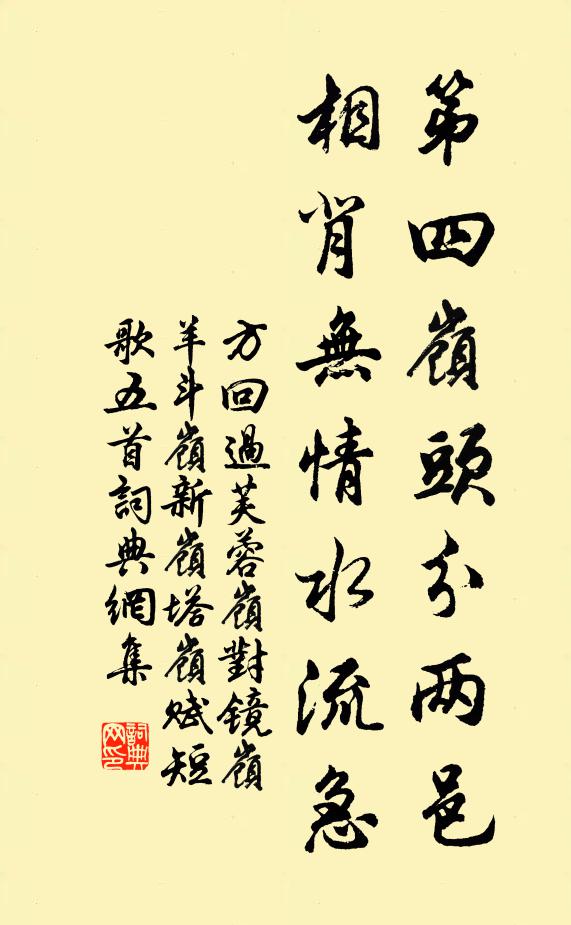 第四嶺頭分两邑
相背無情水流急
方回過芙蓉嶺對鏡嶺
羊斗嶺新嶺塔嶺賦短
歌五首詞典網集
詞典
网印